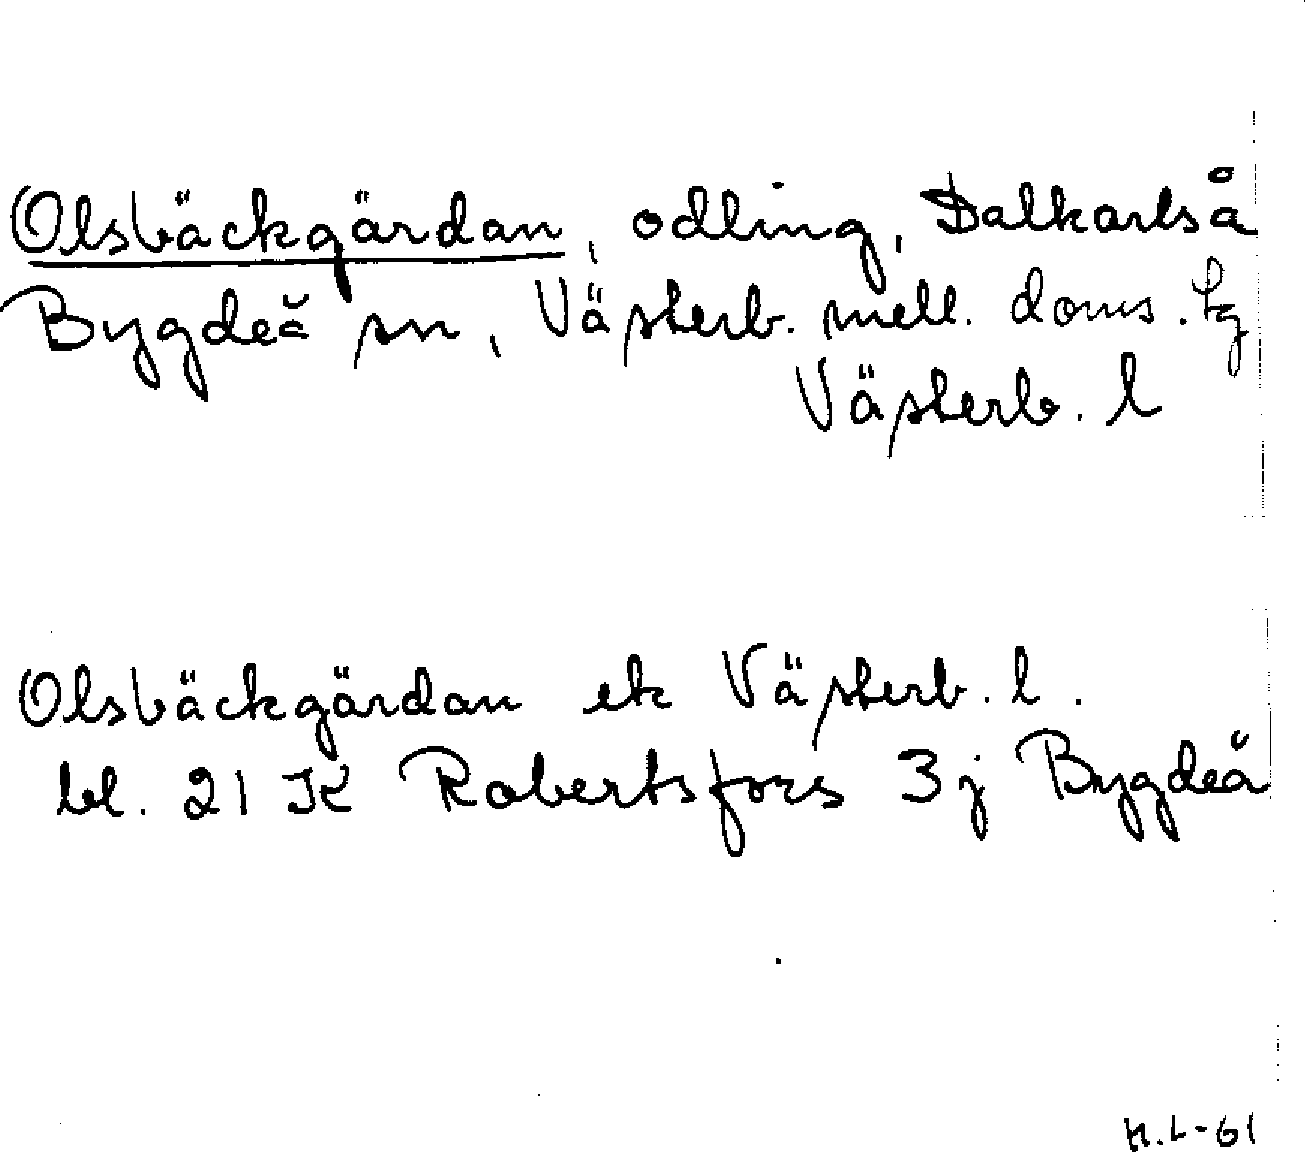 Olsbäckgärdan, odling, Dalkarlså
Bygdeå sn, Västerb. mell. doms. tg
Västerb. l
Olsbäckgärdan ek Västerb. l.
bl. 21 K Robertsfors 3j Bygdeå
H.L-61